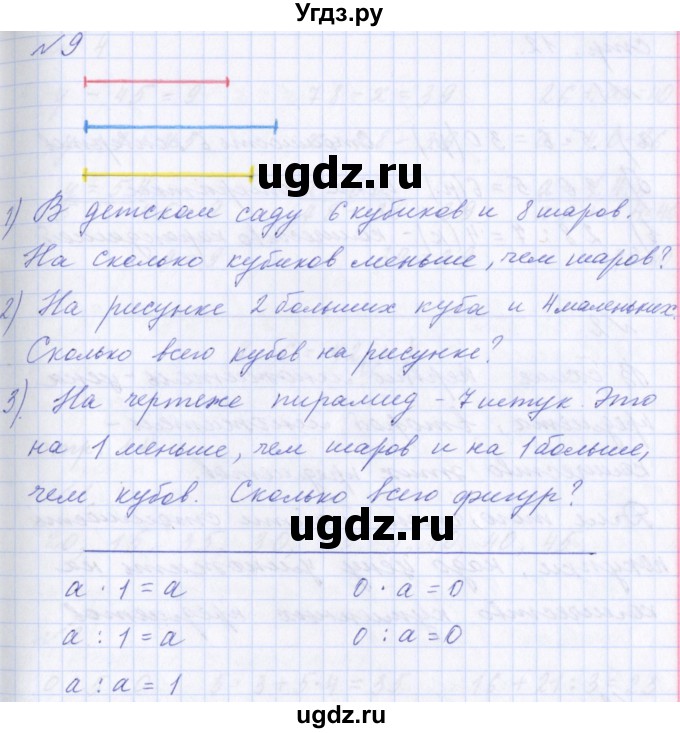 Угдз.ру
№ 9
ugdz.ru
1) В детском саду 6 кубиков и 8 шаров.
На сколько кубиков меньше, чем шаров?
2) На рисунке 2 больших куба и 4 маленьких.
Сколько всего кубов на рисунке?
3) На чертеже пирамид - 7 штук. Это
на 1 меньше, чем шаров и на 1 больше,
чем кубов. Сколько всего фигур?
ugdz.ru
a · 1 = a 0 · a = 0
a : 1 = a 0 : a = 0
a : a = 1
ugdz.ru